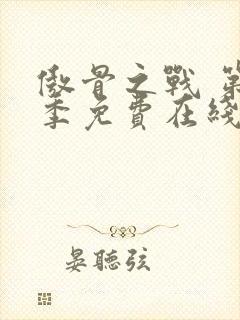 傲骨之戰 第
季免費在綫
晏聽弦